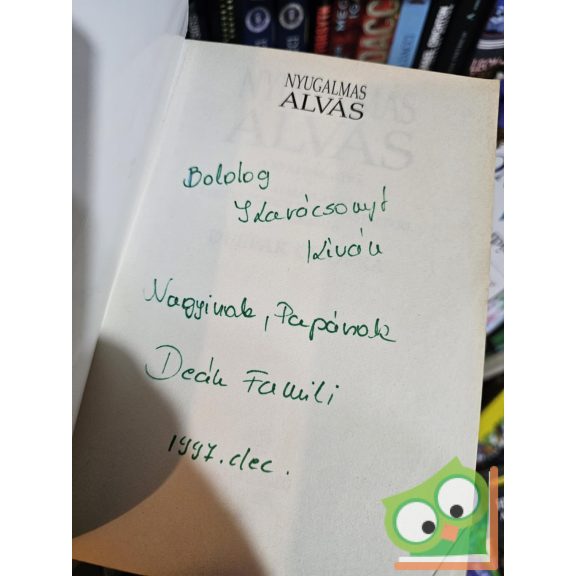 NYUGALMAS
ALVÁS
Bololog
Karácsonyt
Kíván
Nagyinak, Papának
Deák Famili
1997. dec.